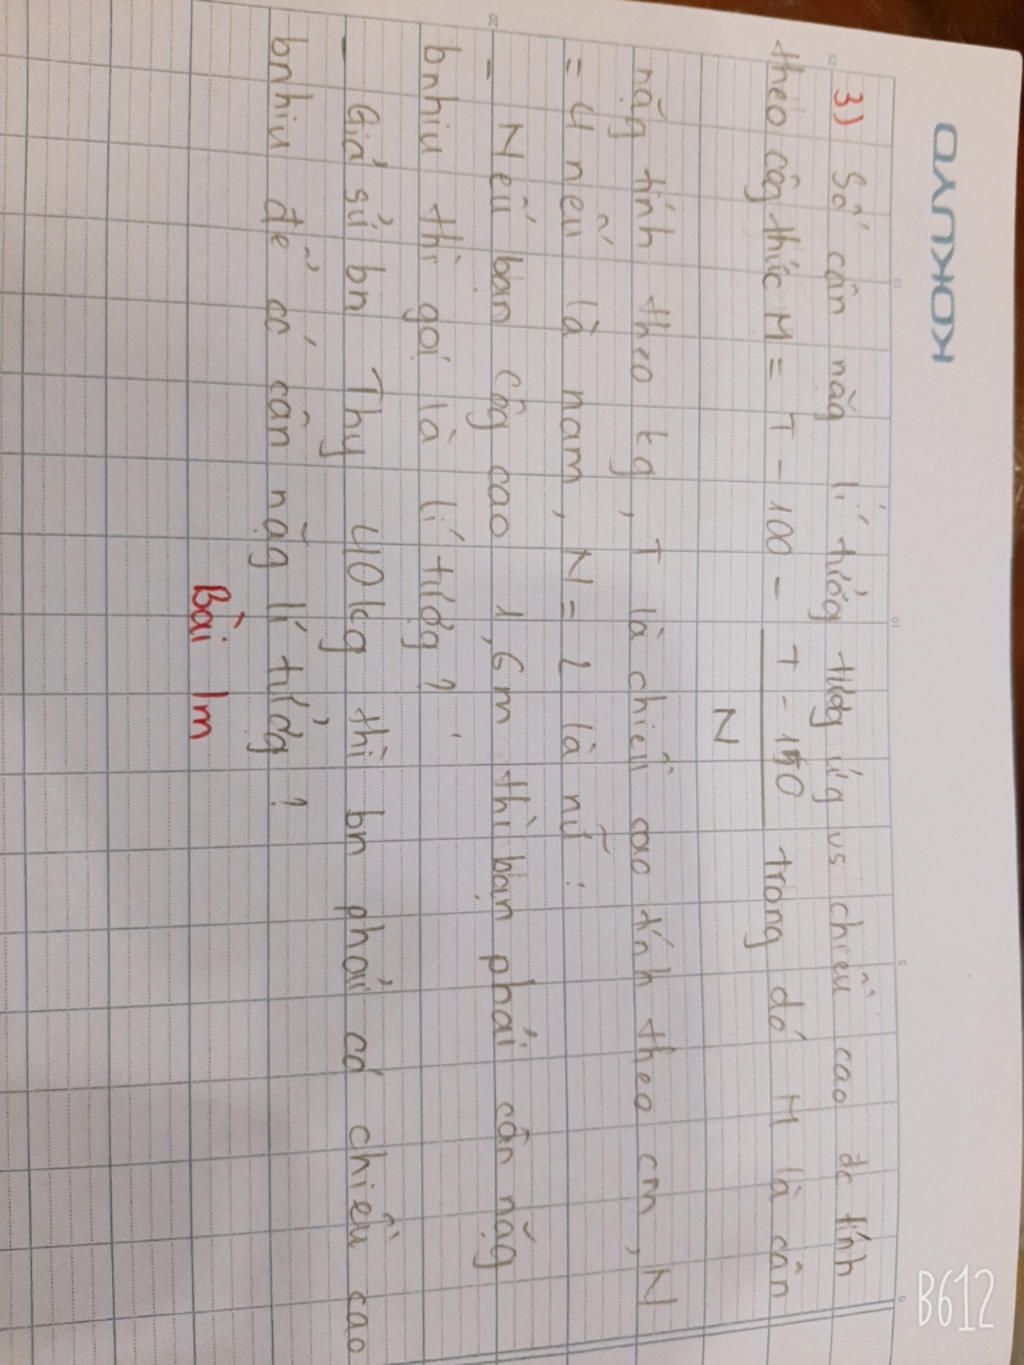 KOKUYO
3) Số cân nặg lí tưởg tươg ứg vs chiều cao đc tính
theo côg thức M = T - 100 - T - 150 / N trong đó M là cân
nặg tính theo kg, T là chiều cao tính theo cm, N
= 4 nếu là nam, N = 2 là nữ.
- Nếu bạn Côg cao 1,6m thì bạn phải cân nặg
bnhiu thì gọi là lí tưởg?
- Giả sử bn Thy 40kg thì bn phải có chiều cao
bnhiu để có cân nặg lí tưởg?
Bài 1m
B612